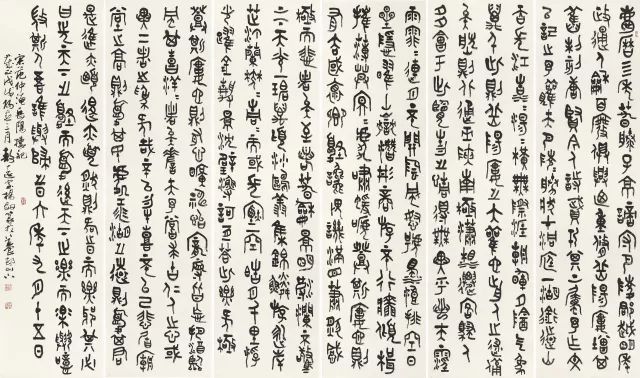 慶曆四年春滕子京謫守巴陵郡越明年
政通人和百廢具興乃重修岳陽樓增其
舊制刻唐賢今人詩賦于其上屬予作文
以記之予觀夫巴陵勝狀在洞庭一湖銜遠山
吞長江浩浩湯湯橫無際涯朝暉夕陰氣象
萬千此則岳陽樓之大觀也前人之述備
矣然則北通巫峽南極瀟湘遷客騷人
多會于此覽物之情得無異乎若夫霪
雨霏霏連月不開陰風怒號濁浪排空日
星隱曜山岳潛形商旅不行檣傾楫
摧薄暮冥冥虎嘯猿啼登斯樓也則
有去國懷鄉憂讒畏譏滿目蕭然感
極而悲者矣至若春和景明波瀾不驚
上下天光一碧萬頃沙鷗翔集錦鱗游泳岸
芷汀蘭郁郁青青而或長煙一空皓月千里浮
光躍金靜影沉璧漁歌互答此樂何極
登斯樓也則有心曠神怡寵辱皆忘把酒臨
風其喜洋洋者矣嗟夫予嘗求古仁人之心或
異二者之為何哉不以物喜不以己悲居廟
堂之高則憂其民處江湖之遠則憂其君
是進亦憂退亦憂然則何時而樂耶其必
曰先天下之憂而憂後天下之樂而樂噫
微斯人吾誰與歸時六年九月十五日
宋范仲淹岳陽樓記